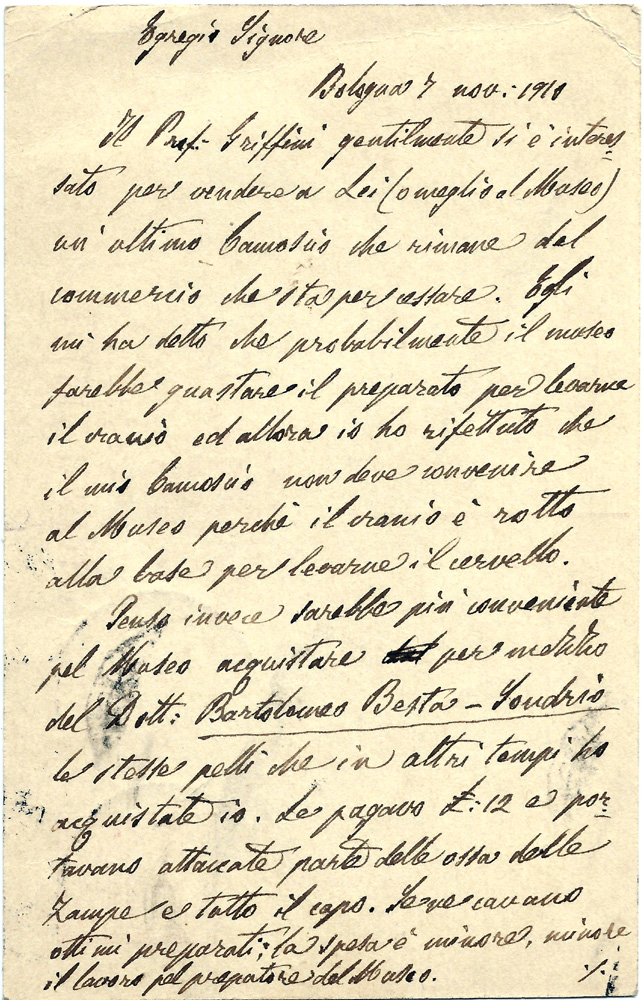 Egregio Signore
Bologna 7 nov: 1910
Il Prof. Griffini gentilmente si è interes
sato per vendere a Lei (o meglio al Museo)
un' ultimo Camoscio che rimane dal
commercio che sta per cessare. Egli
mi ha detto che probabilmente il museo
farebbe guastare il preparato per levarne
il cranio ed allora io ho rifettuto che
il mio Camoscio non deve convenire
al Museo perchè il cranio è rotto
alla base per levarne il cervello.
Penso invece sarebbe più conveniente
pel Museo acquistare per mezzo
del Dott: Bartolomeo Besta - Sondrio
le stesse pelli che in altri tempi ho
acquistate io. Le pagavo £: 12 e por
tavano attaccate parte delle ossa delle
zampe e tutto il capo. Se ne cavano
ottimi preparati; la spesa è minore, minore
il lavoro pel prepatore del Museo. ./.